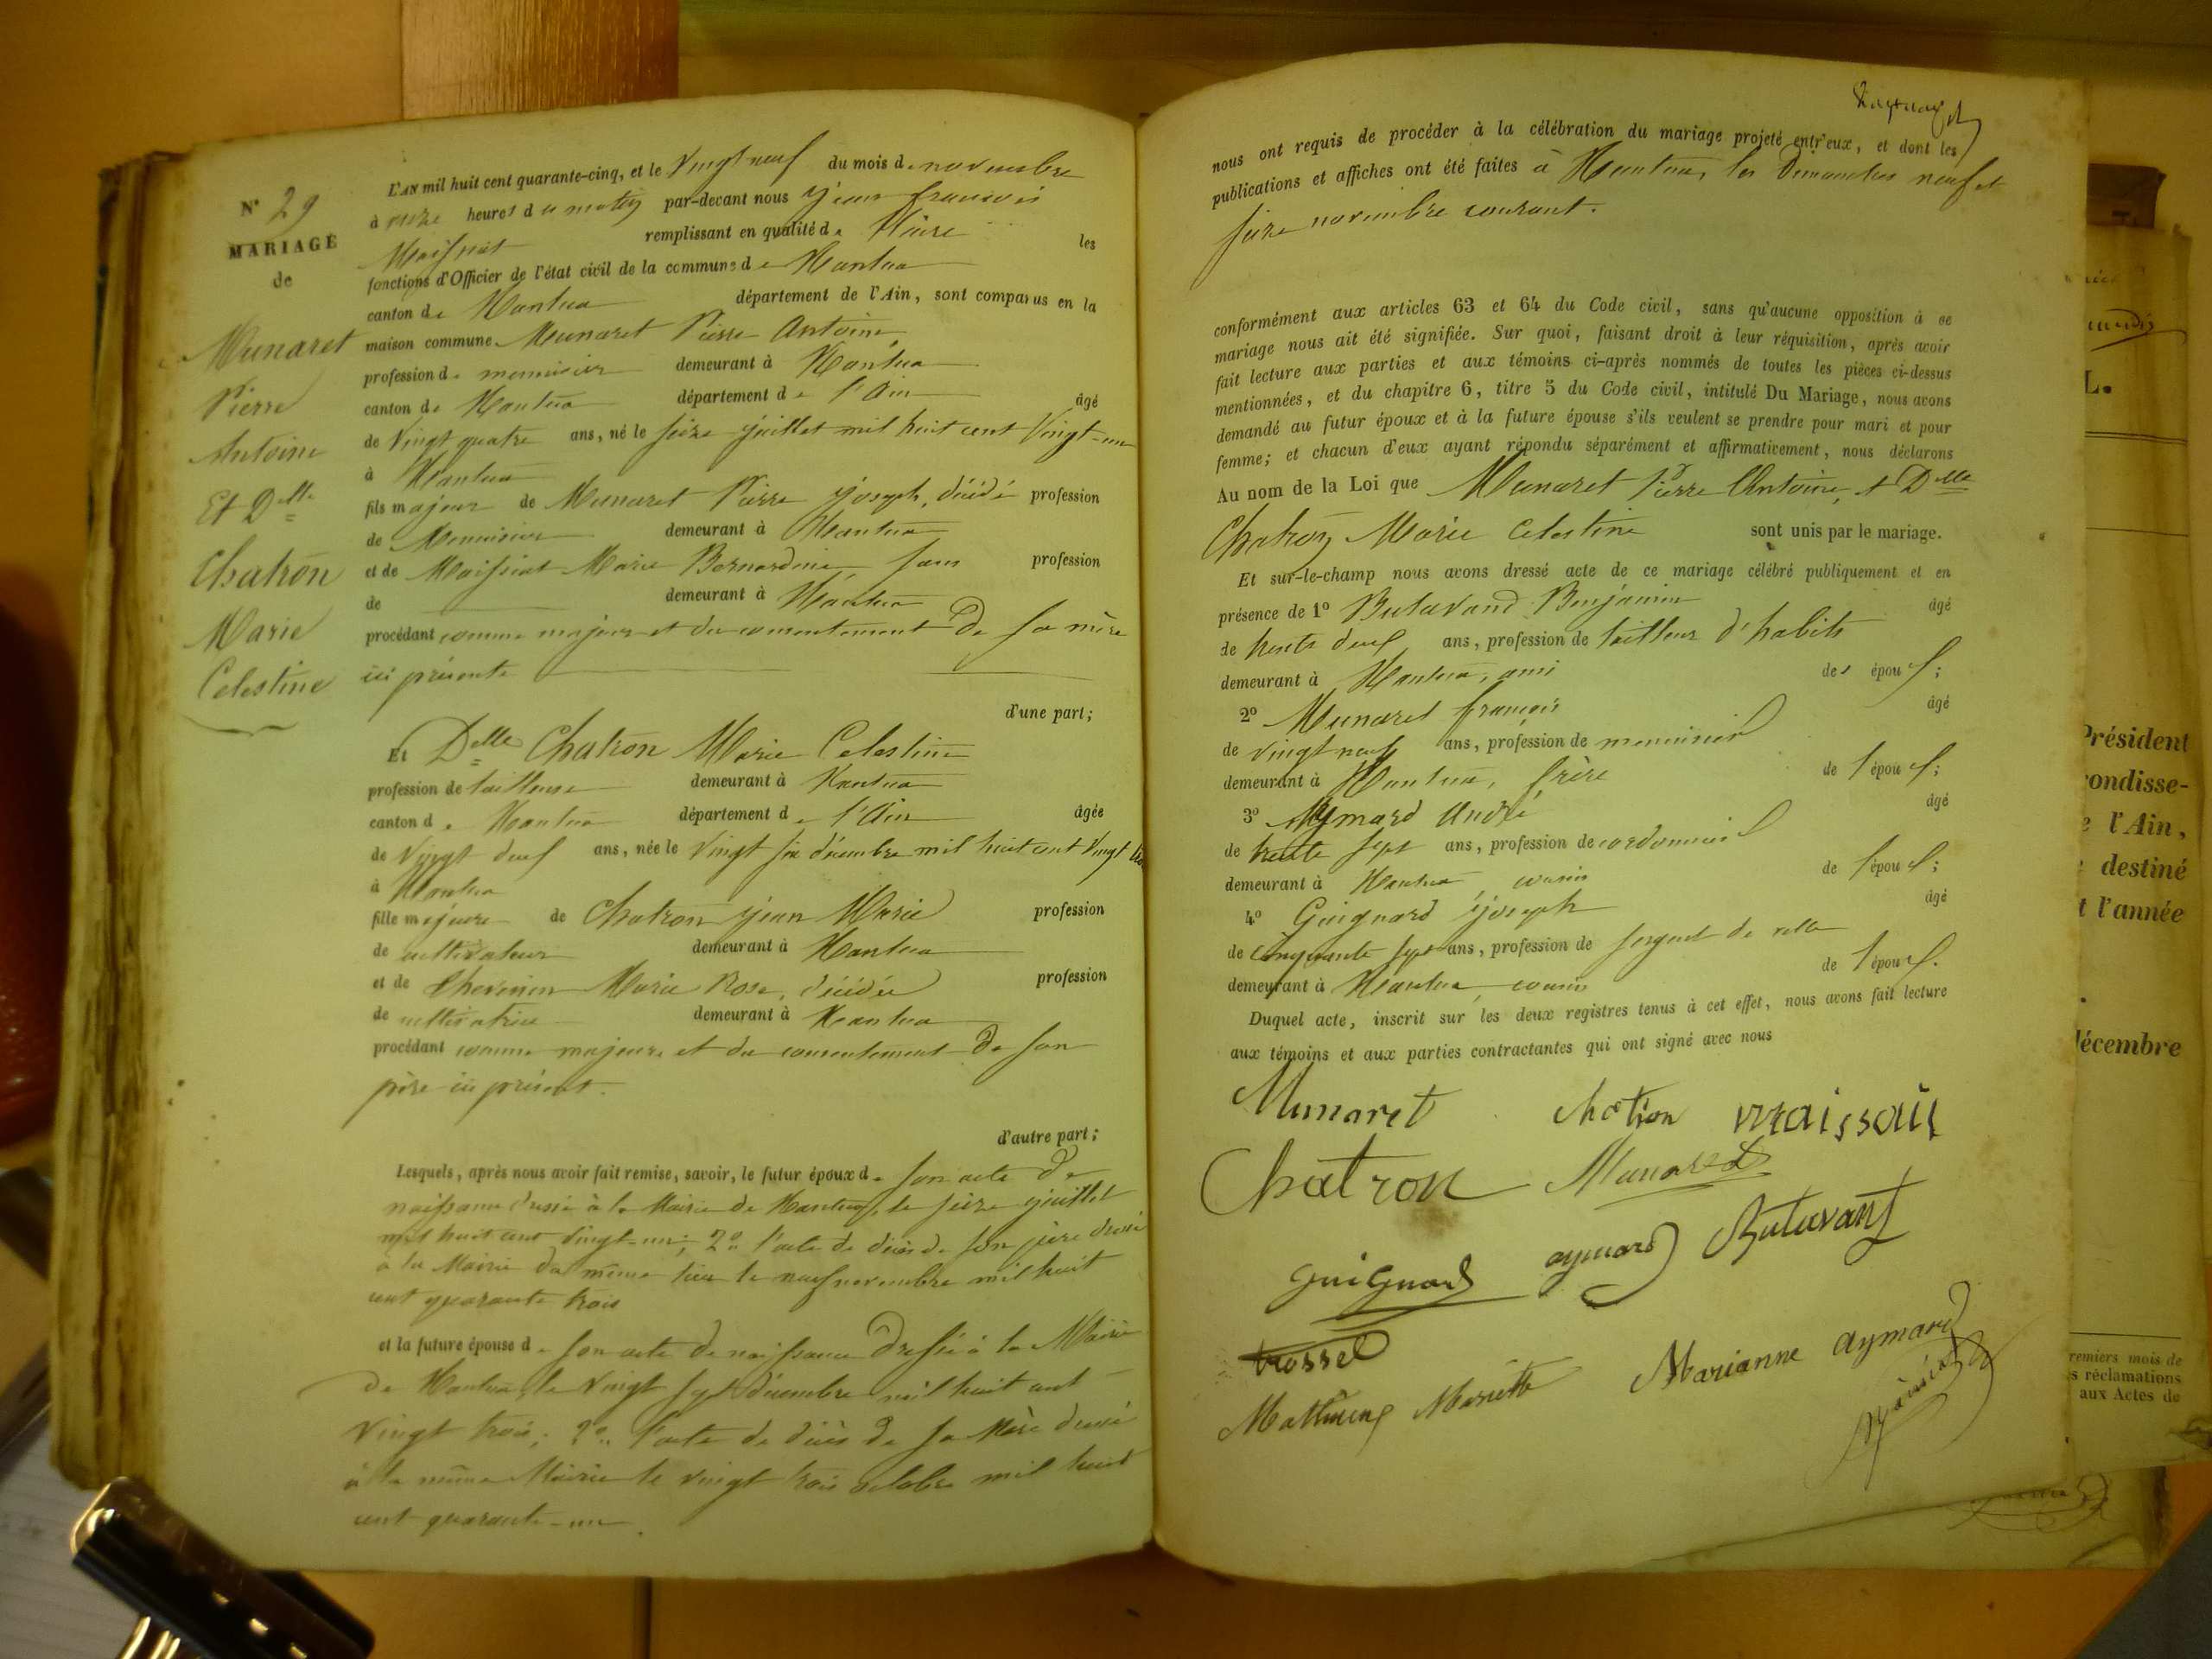 N° 29
MARIAGE
de
Munaret
Pierre
Antoine
Et Dlle
Chatron
Marie
Celestine
L'AN mil huit cent quarante-cinq, et le Vingt neuf du mois de novembre
à onze heures du matin par-devant nous Jean françois
Maissiat remplissant en qualité de Maire les
fonctions d'Officier de l'état civil de la commune de Nantua
canton de Nantua département de l'Ain, sont comparus en la
maison commune Munaret Pierre Antoine
profession de menuisier demeurant à Nantua
canton de Nantua département de l'Ain âgé
de Vingt quatre ans, né le seize juillet mil huit cent Vingt-un
à Nantua
fils majeur de Munaret Pierre joseph, décédé profession
de Menuisier demeurant à Nantua
et de Maissiat Marie Bernardine sans profession
de demeurant à Nantua
procédant comme majeur et du consentement De sa mère
ici présente
d'une part;
Et Dlle Chatron Marie Celestine
profession de tailleuse demeurant à Nantua
canton de Nantua département de l'Ain âgée
de Vingt deux ans, née le Vingt six décembre mil huit cent Vingt
à Nantua
fille majeure de Chatron jean Marie profession
de cultivateur demeurant à Nantua
et de Thevenin Marie Rose, décédée profession
de cultivatrice demeurant à Nantua
procédant comme majeure et du consentement De son
père ici présent.
d'autre part;
Lesquels, après nous avoir fait remise, savoir, le futur époux de son acte De
naissance dressé à la Mairie de Nantua, le seize juillet
mil huit cent vingt-un; 2° l'acte de décès de son père dressé
à la Mairie du même lieu le neuf novembre mil huit
cent quarante trois
et la future épouse de son acte de naissance Dressé à la Mairie
de Nantua, le Vingt sept décembre mil huit cent
Vingt trois; 2° l'acte de décès de sa Mère dressé
à la même Mairie le vingt trois octobre mil huit
cent quarante-un.
nous ont requis de procéder à la célébration du mariage projeté entr'eux, et dont les
publications et affiches ont été faites à Nantua, les Dimanches neuf et
seize novembre courant.
conformément aux articles 63 et 64 du Code civil, sans qu'aucune opposition à ce
mariage nous ait été signifiée. Sur quoi, faisant droit à leur réquisition, après avoir
fait lecture aux parties et aux témoins ci-après nommés de toutes les pièces ci-dessus
mentionnées, et du chapitre 6, titre 5 du Code civil, intitulé Du Mariage, nous avons
demandé au futur époux et à la future épouse s'ils veulent se prendre pour mari et pour
femme; et chacun d'eux ayant répondu séparément et affirmativement, nous déclarons
Au nom de la Loi que Munaret Pierre Antoine, et Dlle
Chatron Marie Celestine sont unis par le mariage.
Et sur-le-champ nous avons dressé acte de ce mariage célébré publiquement et en
présence de 1° Butavand Benjamin âgé
de trente deux ans, profession de tailleur d'habits
demeurant à Nantua, ami des époux;
2° Munaret françois âgé
de vingt neuf ans, profession de menuisier
demeurant à Nantua, frère de l'époux;
3° Aymard André âgé
de trente sept ans, profession de cordonnier
demeurant à Nantua, cousin de l'époux;
4° Guignard joseph âgé
de cinquante sept ans, profession de sergent de ville
demeurant à Nantua cousin de l'époux.
Duquel acte, inscrit sur les deux registres tenus à cet effet, nous avons fait lecture
aux témoins et aux parties contractantes qui ont signé avec nous
Munaret chatron maissait
Chatron Munaret
guignard aymard Butavant
trossel
Mathieu Mariette Marianne aymard
Président
ondisse-
l'Ain,
destiné
l'année
décembre
remiers mois de
s réclamations
aux Actes de